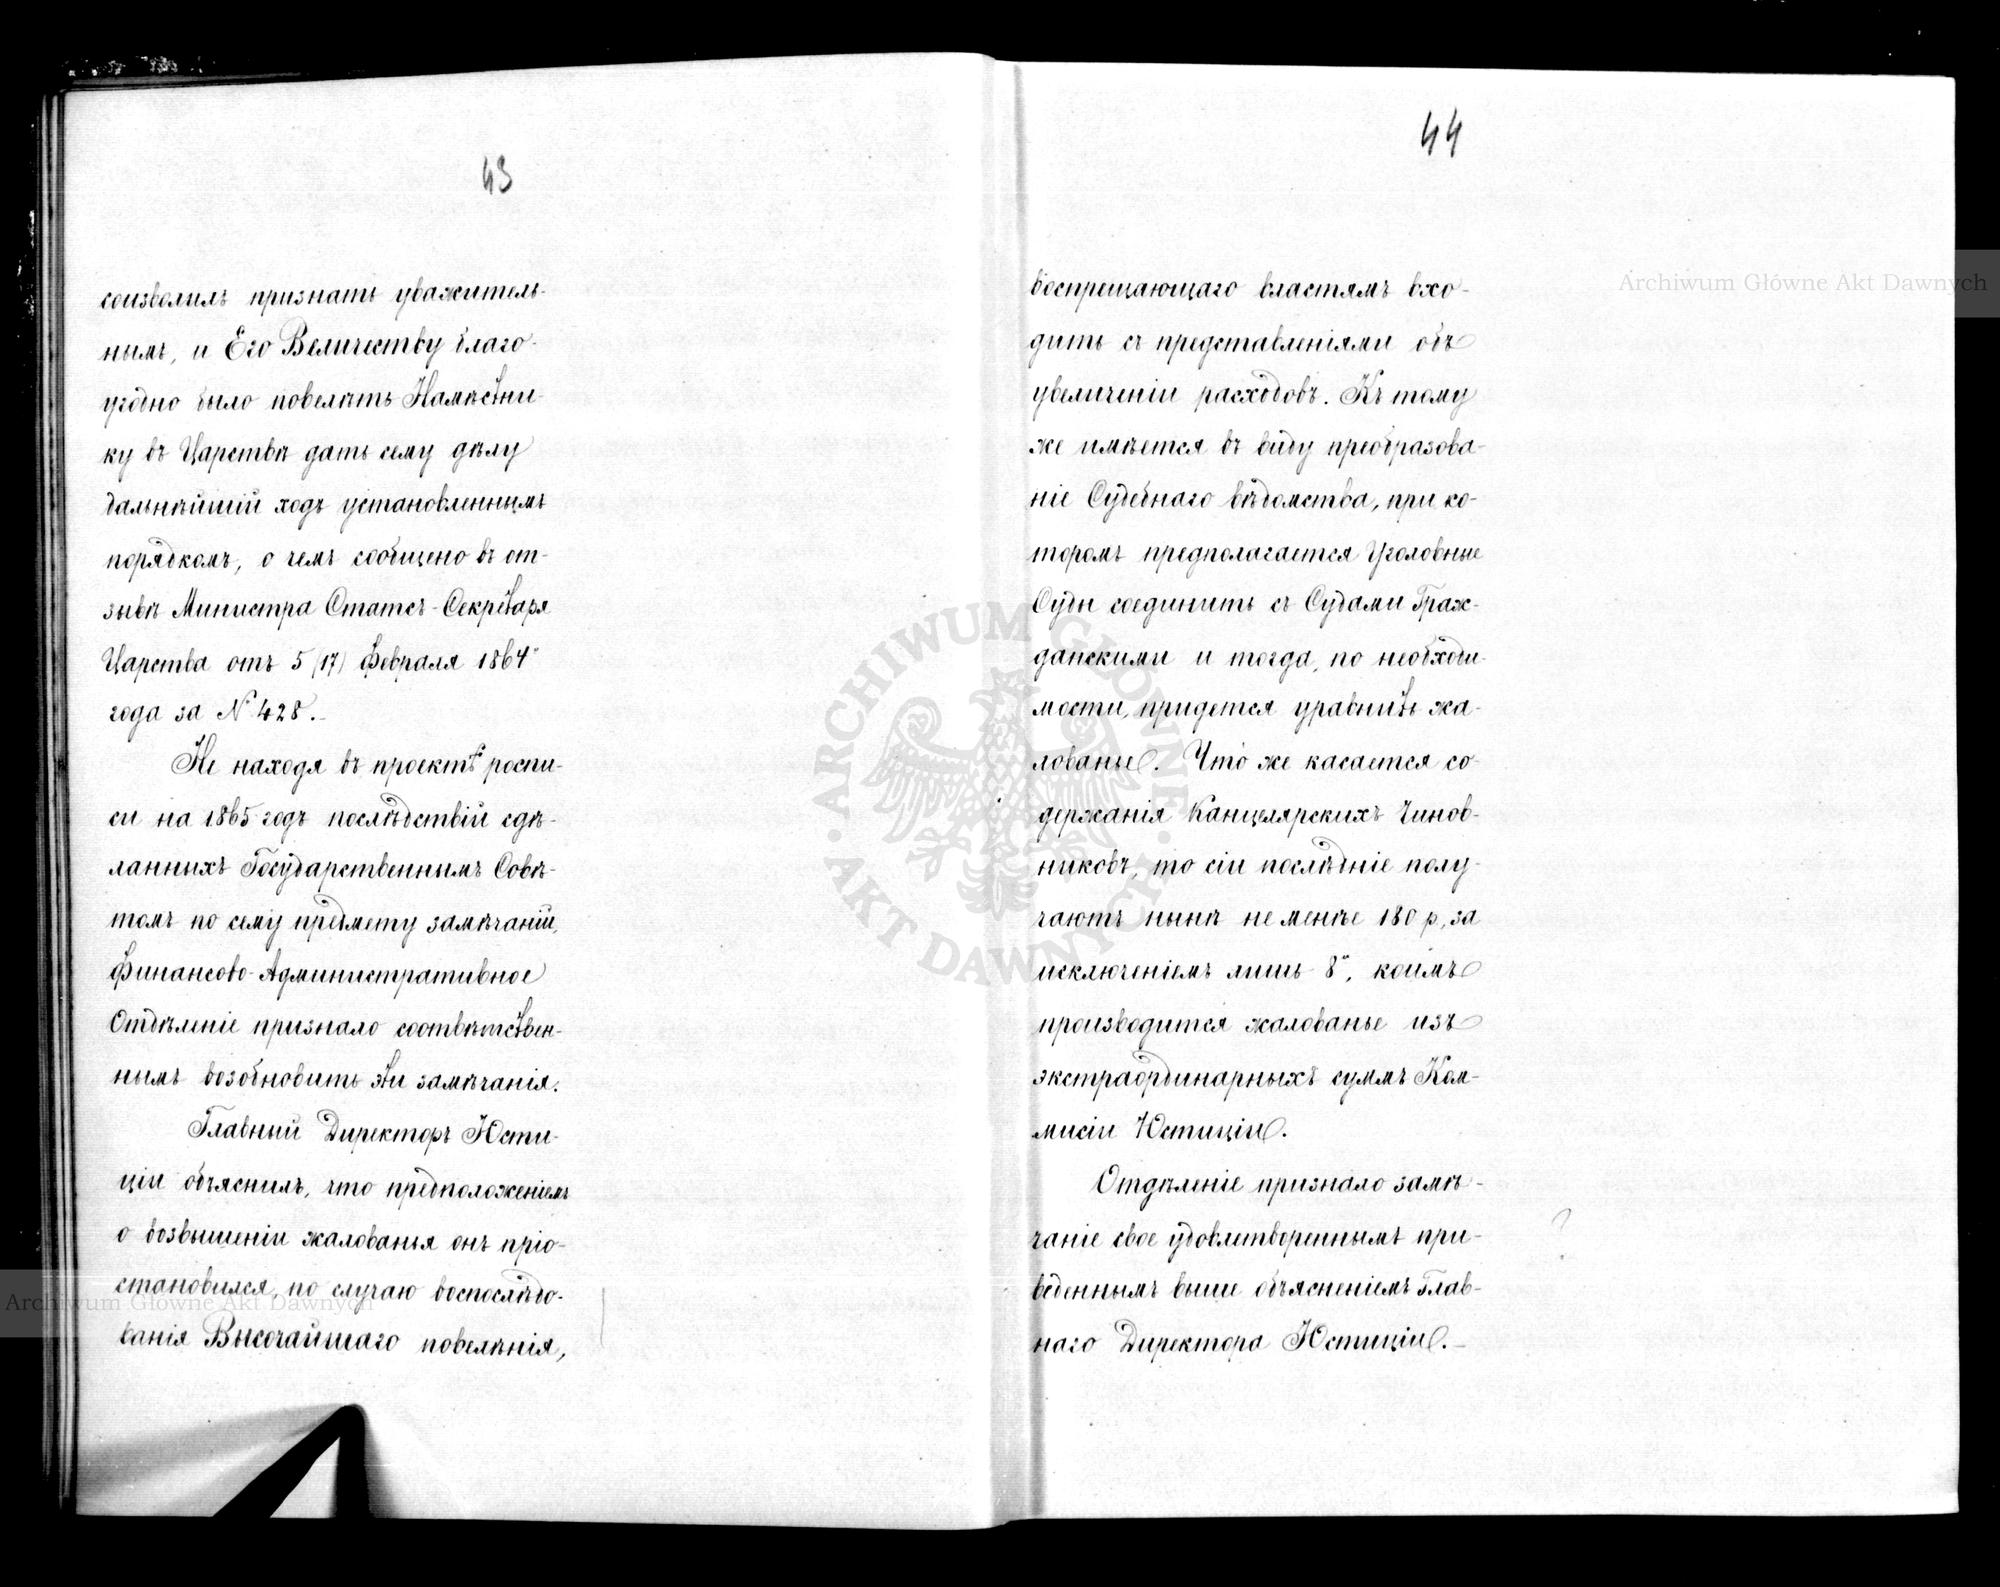 43
соизволилъ признать уважитель-
нымъ, и Его Величеству благо-
угодно было повелѣть Намѣстни-
ку въ Царствѣ дать сему дѣлу
дальнѣйшій ходъ установленнымъ
порядкомъ, о чемъ сообщено въ от-
зывѣ Министра Статсъ-Секретаря
Царства отъ 5/17) февраля 1864
года за № 428.
Не находя въ проектѣ роспи-
си на 1865 годъ послѣдствій сдѣ-
ланныхъ Государственнымъ Совѣ-
томъ по сему предмету замѣчаній,
Финансово-Административное
Отдѣленіе признало соотвѣтствен-
нымъ возобновить эти замѣчанія.
Главный Директоръ Юсти-
ціи объяснилъ, что предположеніемъ
о возвышеніи жалованья онъ пріо-
становился, по случаю воспослѣдо-
ванія Высочайшаго повелѣнія,
44
воспрещающаго властямъ вхо-
дить съ представленіями объ
увеличеніи расходовъ. Къ тому
же имѣется въ виду преобразова-
ніе Судебнаго вѣдомства, при ко-
торомъ предполагается Уголовные
Суды соединить съ Судами Граж-
данскими и тогда, по необходи-
мости, придется уравнить жа-
лованье. Что же касается со-
держанія Канцелярскихъ Чинов-
никовъ, то сіи послѣдніе полу-
чаютъ нынѣ не менѣе 180 р., за
исключеніемъ лишь 8и, коимъ
производится жалованье изъ
экстраординарныхъ суммъ Ком-
мисіи Юстиціи.
Отдѣленіе признало замѣ-
чаніе свое удовлетвореннымъ при-
веденнымъ выше объясненіемъ Глав-
наго Директора Юстиціи.
?
Archiwum Główne Akt Dawnych
Archiwum Główne Akt Dawnych
ARCHIWUM GŁÓWNE AKT DAWNYCH